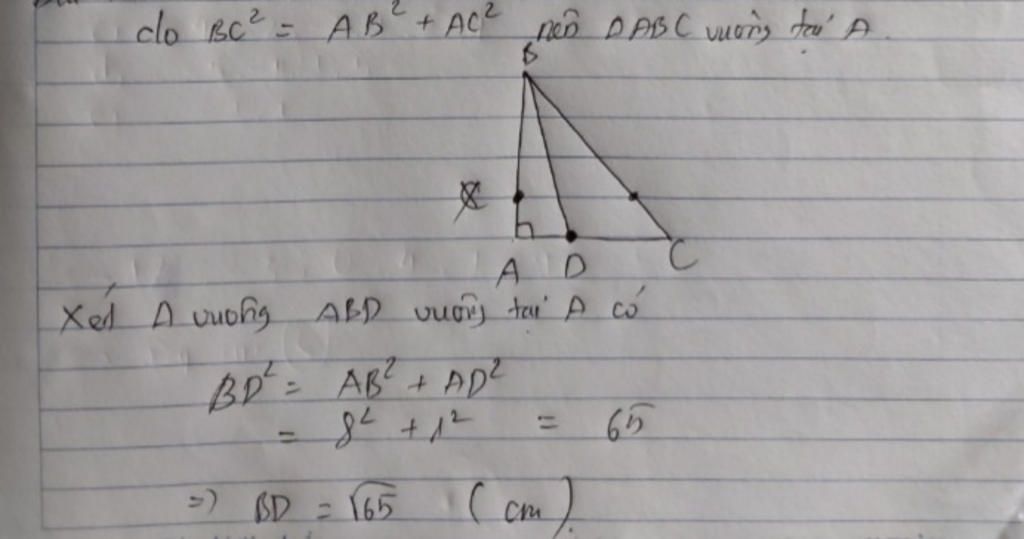 do BC² = AB² + AC² nên ΔABC vuông tại A.
B
A D C
Xét Δ vuông ABD vuông tại A có
BD² = AB² + AD²
= 8² + 1² = 65
=> BD = √65 (cm).